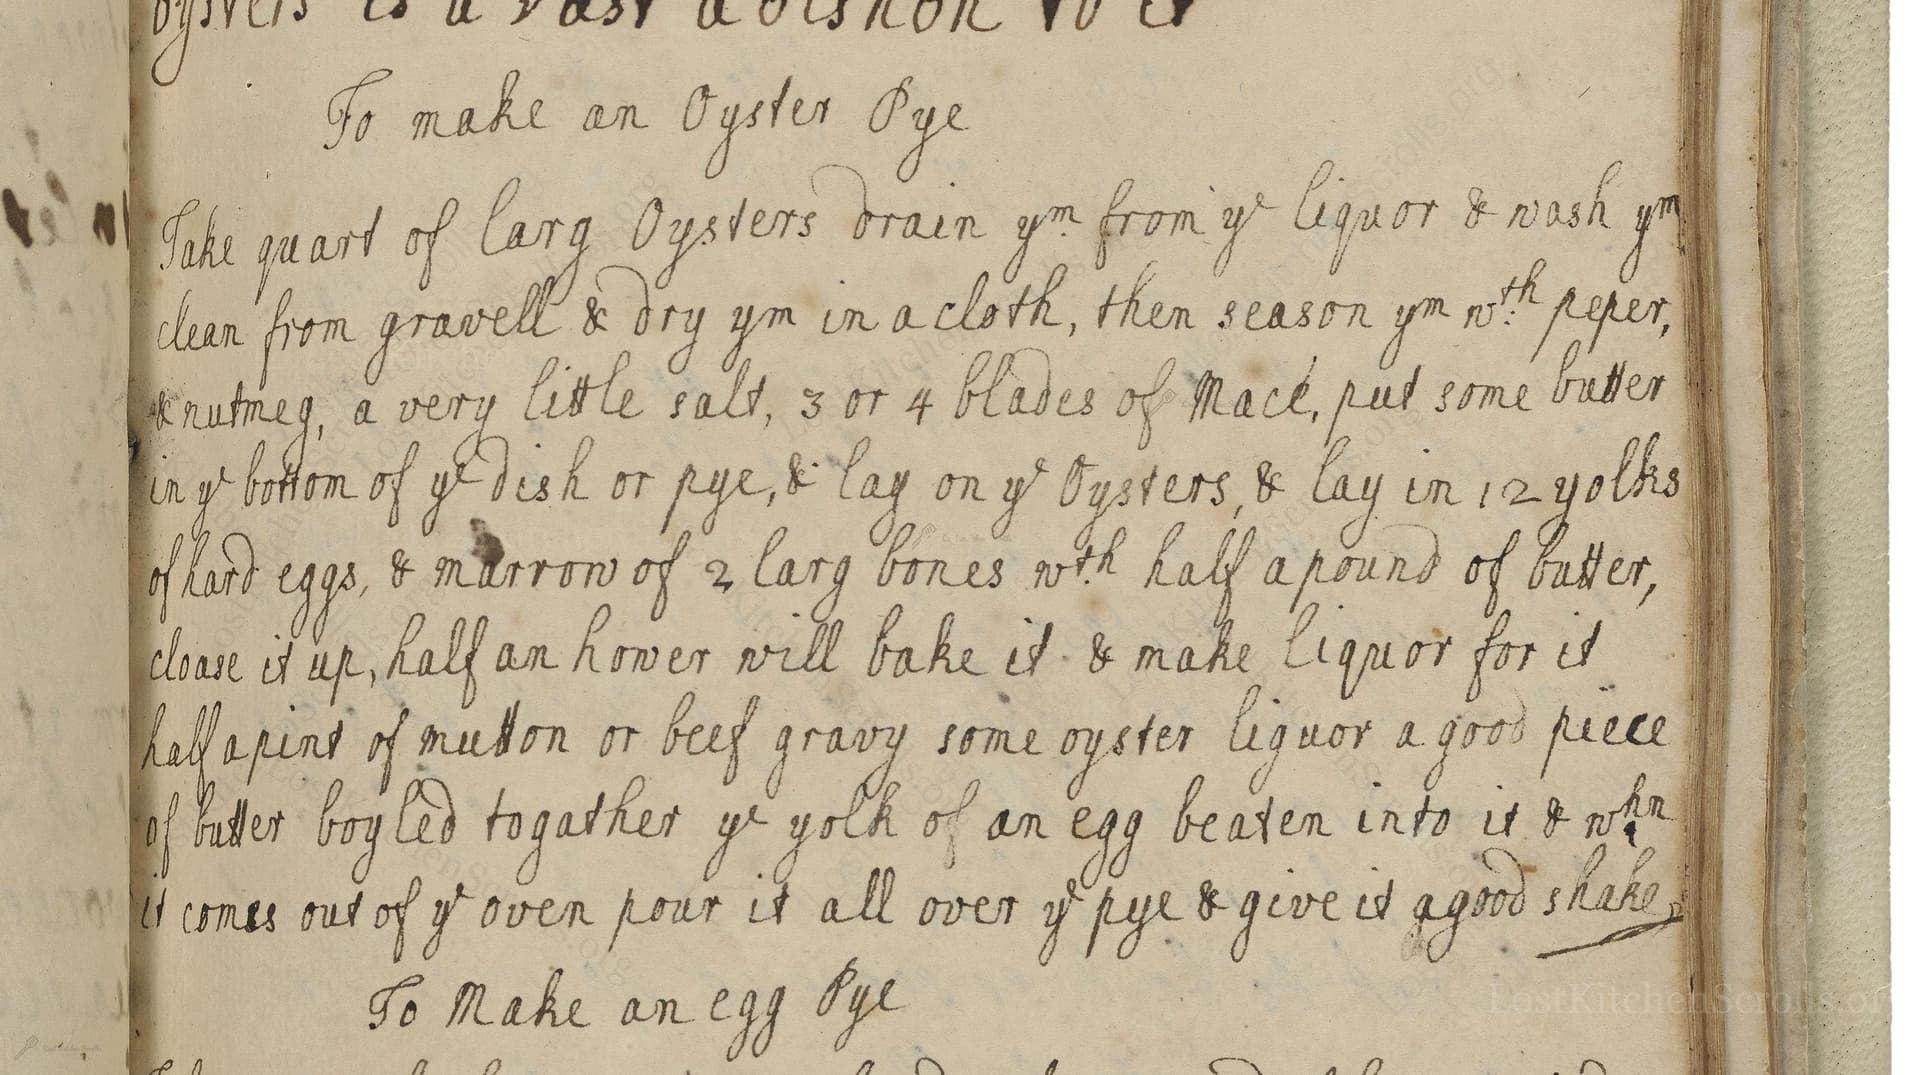 oysters is a vast adishon to it
To make an Oyster Pye
Take quart of larg Oysters drain ym from ye liquor & wash ym
clean from gravell & dry ym in a cloth, then season ym wth peper,
& nutmeg, a very little salt, 3 or 4 blades of Mace, put some butter
in ye bottom of ye dish or pye, & lay on ye Oysters, & lay in 12 yolks
of hard eggs, & marrow of 2 larg bones wth half a pound of butter,
cloase it up, half an hower will bake it & make liquor for it
half a pint of mutton or beef gravy some oyster liquor a good piece
of butter boyled togather ye yolk of an egg beaten into it & whn
it comes out of ye oven pour it all over ye pye & give it a good shake
To Make an egg Pye
LostKitchenScrolls.or